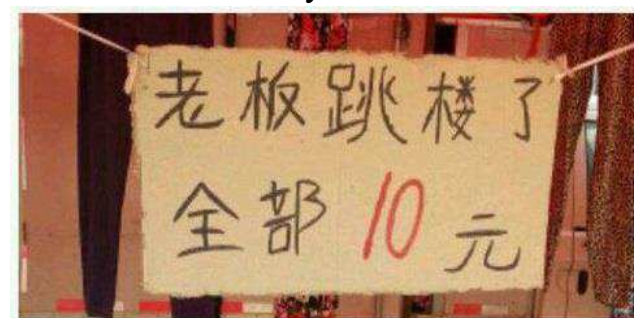 老板跳楼了
全部10元